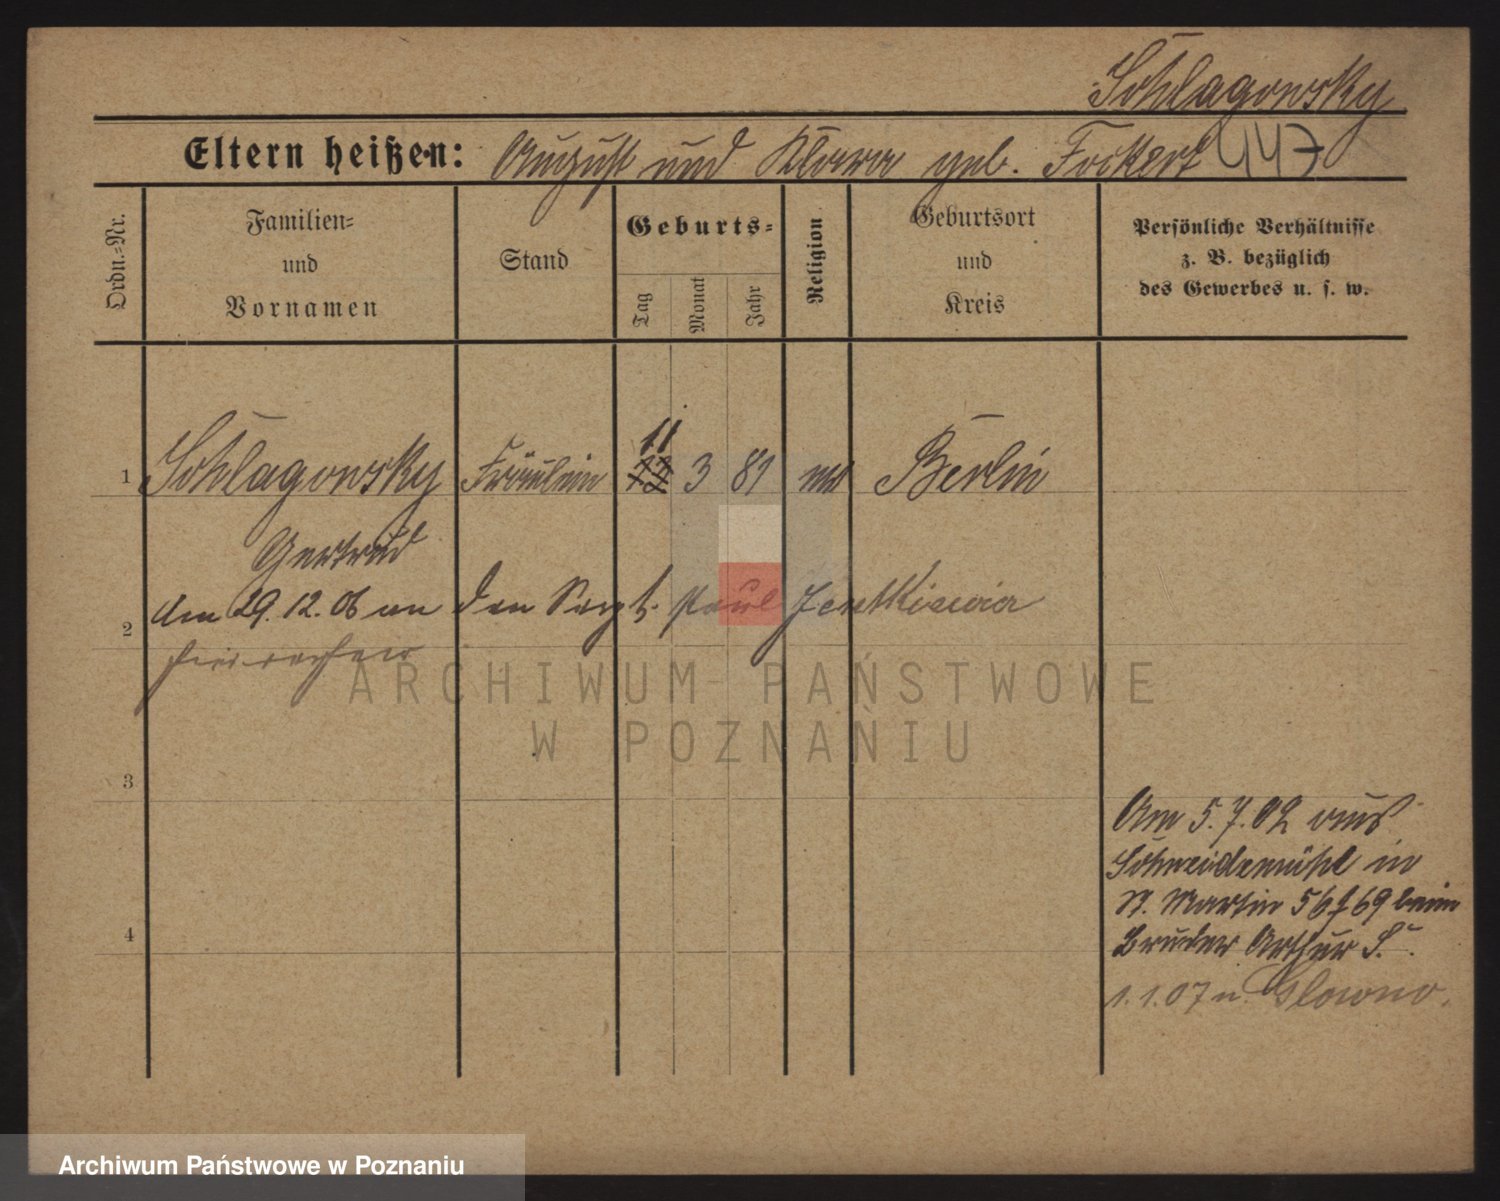 Schlagowsky
Eltern heißen: August und Klara geb. Fockert 447
Ordn.=Nr.
Familien=
und
Vornamen
Stand
Geburts=
Tag
Monat
Jahr
Religion
Geburtsort
und
Kreis
Persönliche Verhältnisse
z. B. bezüglich
des Gewerbes u. s. w.
11
1 Schlagowsky Fräulein 3 81 Berlin
Gertrud
2 Am 29.12.06 an den Sergt. Paul
3
4
Am 5.7.02 aus
Schneidemühl in
St. Martin 56 69 beim
Bruder Arthur S.
1.1.07 n. Glowno.
ARCHIWUM PAŃSTWOWE
W POZNANIU
Archiwum Państwowe w Poznaniu